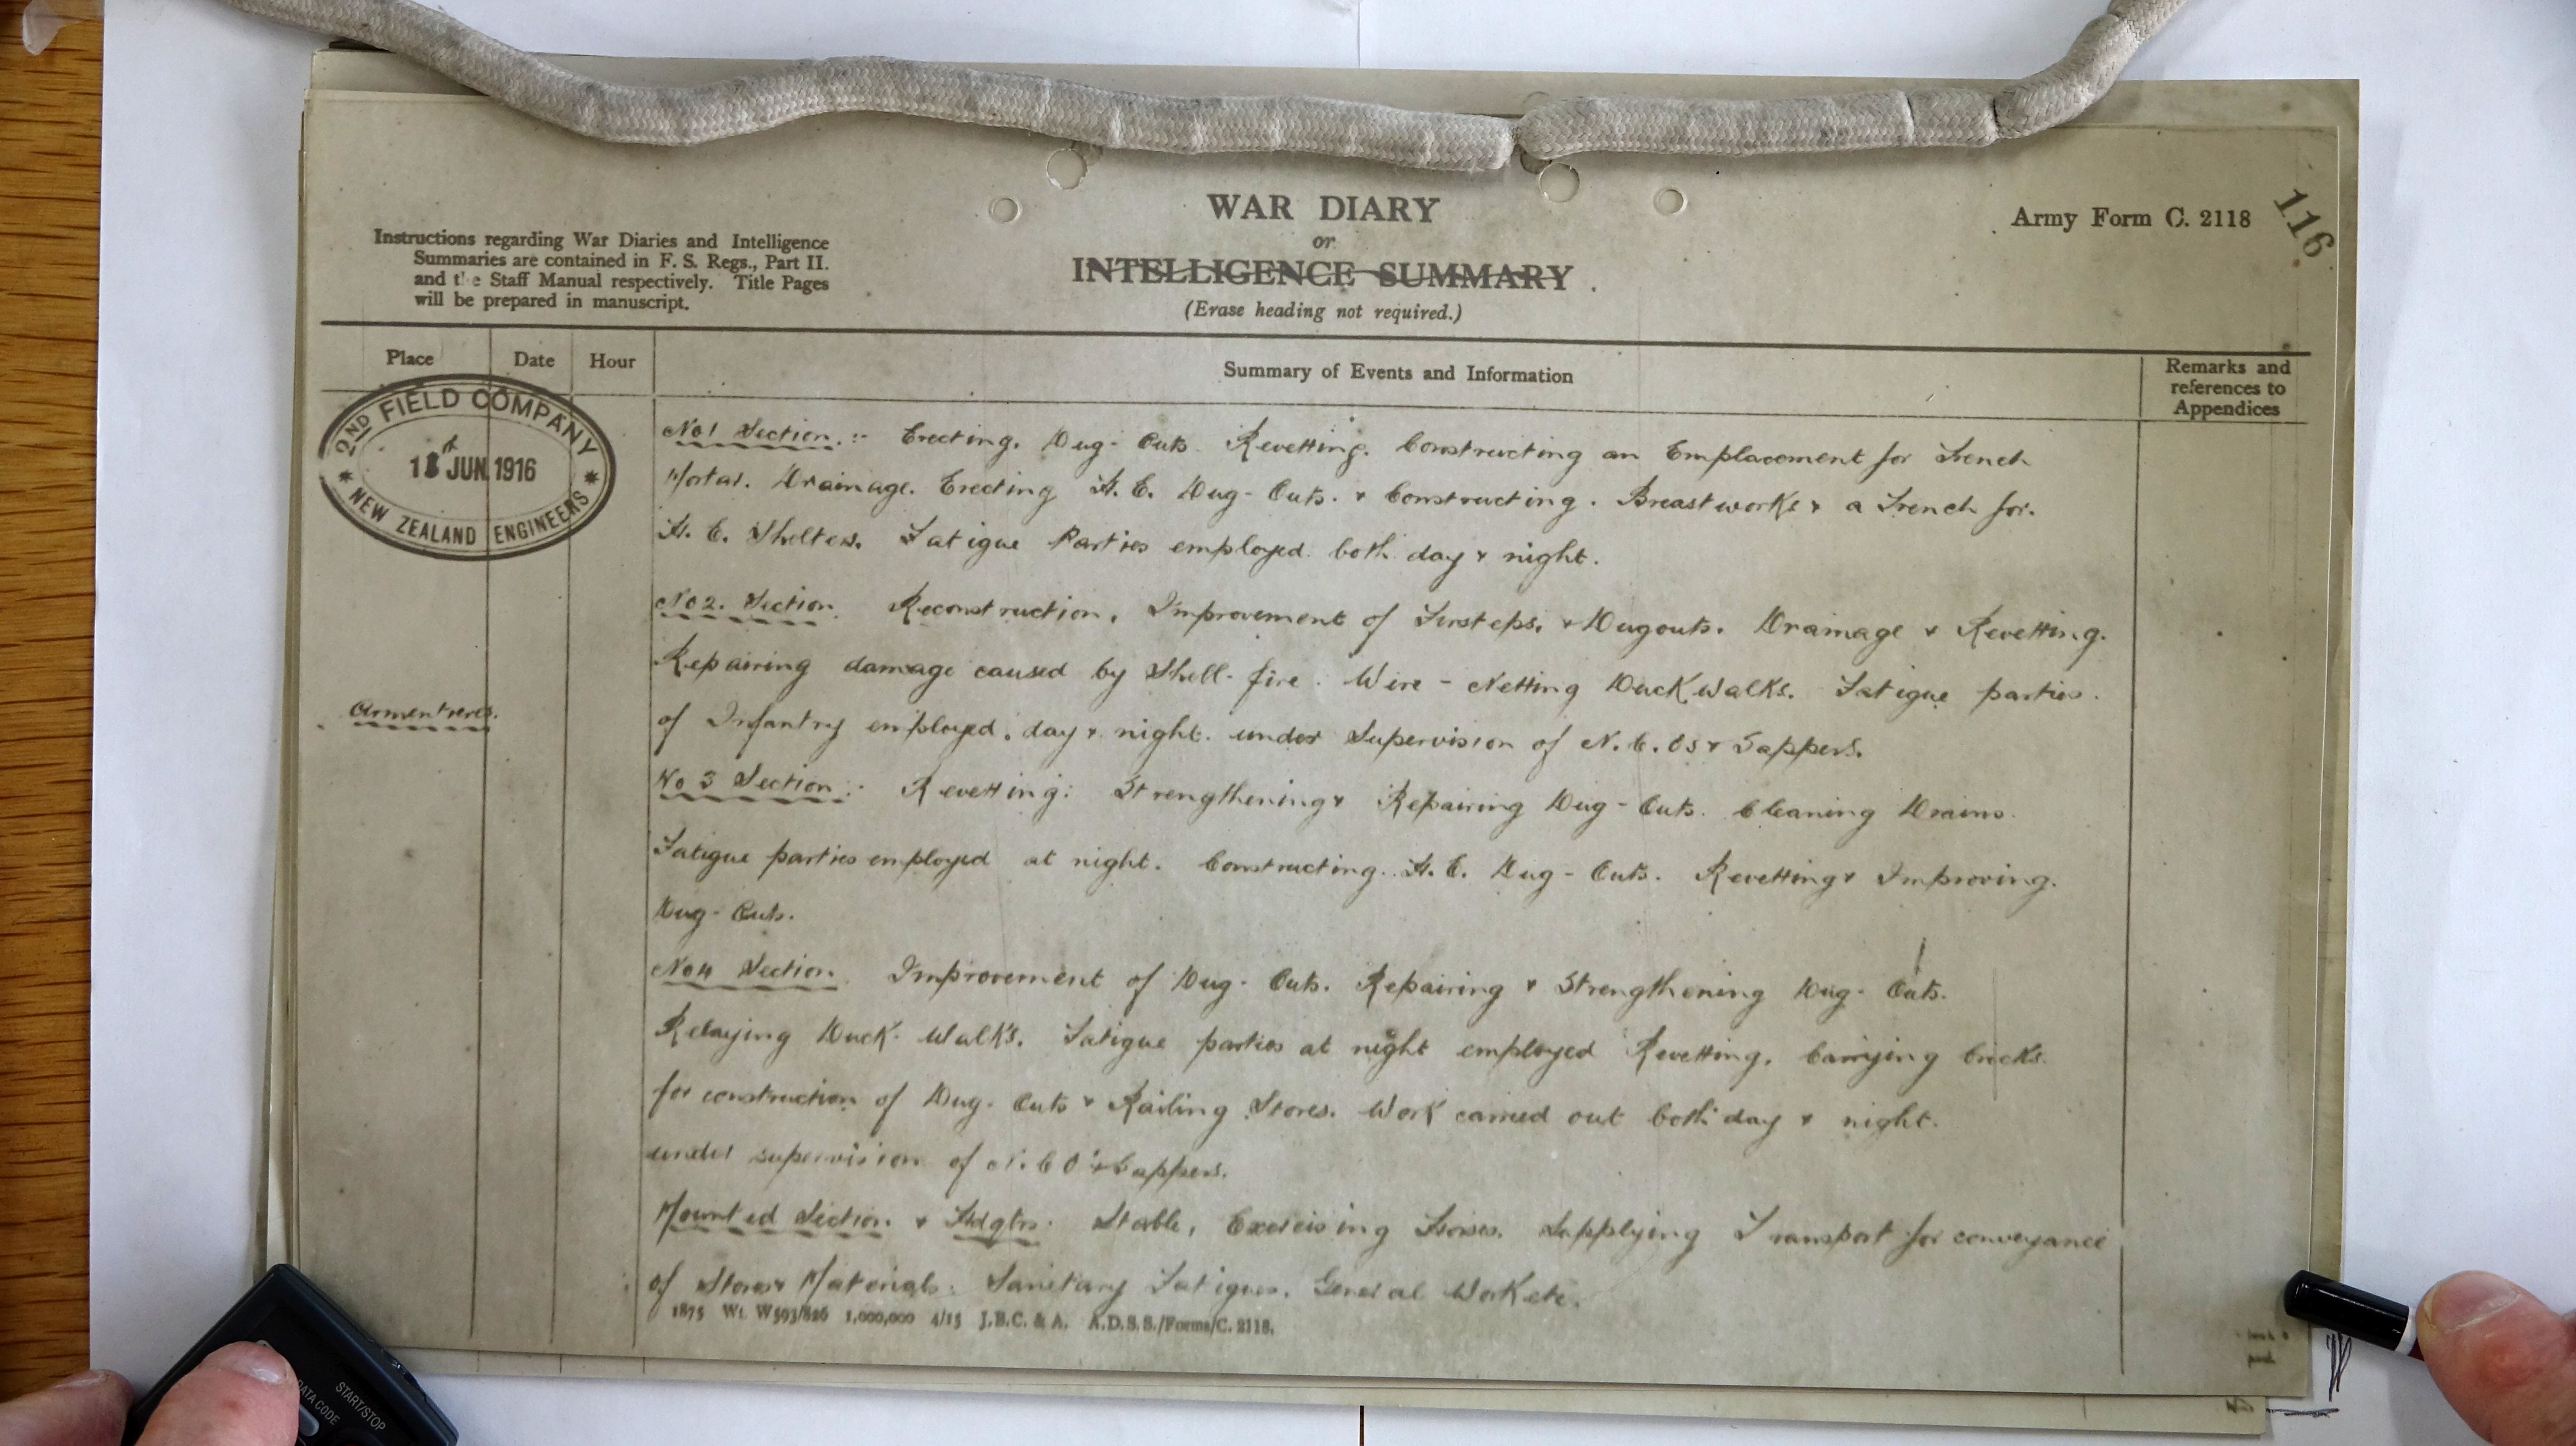 WAR DIARY
or
INTELLIGENCE SUMMARY.
(Erase heading not required.)
Army Form C. 2118
116
Instructions regarding War Diaries and Intelligence
Summaries are contained in F. S. Regs., Part II.
and the Staff Manual respectively. Title Pages
will be prepared in manuscript.
Place Date Hour Summary of Events and Information Remarks and
references to
Appendices
2ND FIELD COMPANY
JUN 1916
NEW ZEALAND ENGINEERS
Armentieres.
No 1 Section. :- Erecting. Dug-Outs. Revetting. Constructing an Emplacement for Trench
Mortar. Drainage. Erecting H. E. Dug-Outs. & Constructing. Breastworks & a Trench for.
H. E. Shelters. Fatigue Parties employed both day & night.
No 2. Section. Reconstruction, Improvement of Firsteps, & Dugouts. Drainage & Revetting.
Repairing damage caused by Shell-fire. Wire-Netting Duck Walks. Fatigue parties.
of Infantry employed, day & night. under Supervision of N. C. Os & Sappers.
No 3 Section:- Revetting: Strengthening & Repairing Dug-Outs. Cleaning Drains.
Fatigue parties employed at night. Constructing. H. E. Dug-Outs. Revetting & Improving.
Dug-Outs.
No 4 Section. Improvement of Dug-Outs. Repairing & Strengthening Dug-Outs.
Relaying Duck-Walks. Fatigue parties at night employed Revetting, Carrying bricks.
for construction of Dug-Outs & Railing Stores. Work carried out both day & night.
under supervision of N. C O's & Sappers.
Mounted Section & Hdqtrs. Stable, Exercising Horses. Supplying Transport for conveyance
of Stores & Materials. Sanitary Fatigues. General Work etc.
1875 Wt. W593/826 1,000,000 4/15 J.B.C. & A. A.D.S.S./Forms/C. 2118.
DATA CODE
START/STOP